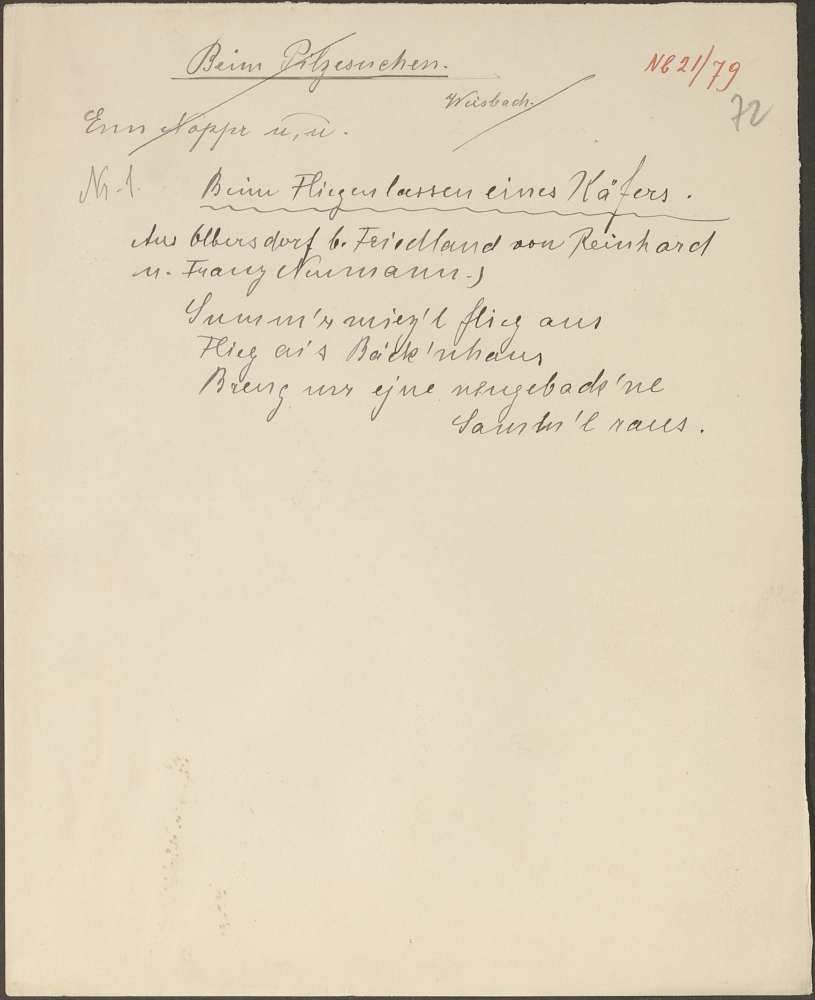 Beim Pilzesuchen.
NB 21/79
72
Weisbach.
Enn Nappr u, u.
Nr. 1. Beim Fliegenlassen eines Käfers.
Aus Olbersdorf b. Friedland von Reinhard
u. Franz Neumann.)
Summ'r miez'l flieg aus
Flieg ai's Bäck'nhaus
Breng mr ejne neugeback'ne
Samm'l raus.